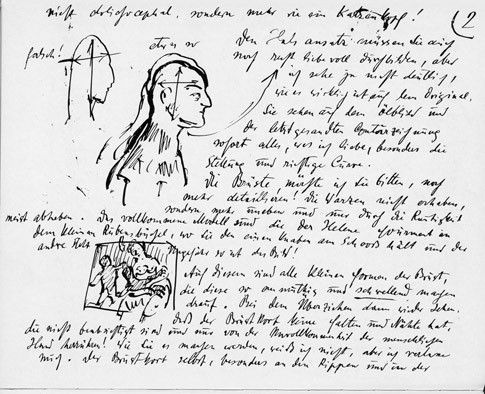 nicht dolichocephal, sondern mehr wie ein Katzenkopf!
(2
falsch!
etwa so
Den Halsansatz müssen Sie auch
noch recht liebevoll durchbilden, aber
ich sehe ja nicht deutlich,
wie es wirklich ist auf dem Original.
Sie sehen auf dem Ölbild und
der letztgesandten Contourzeichnung
sofort alles, was ich liebe, besonders die
Stellung und richtige Curve.
Die Brüste, möchte ich Sie bitten, noch
mehr detaillieren! Die Warzen nicht erhoben,
sondern mehr uneben und nur durch die Runzligkeit
meist abheben. Das vollkommene Modell sind die der Helene Fourment in
dem kleinen Rubensbüchel, wo sie den einen Knaben am Schooss hält und der
andre steht
Ungefähr so ist das Bild!
Auf diesem sind alle kleinen Formen der Brüst,
die diese so anmuthig und schwellend machen
drauf. Bei dem Überziehen dann wieder sehen.
Dass der Brustkorb kleine Falten und Nähte hat,
die nicht beabsichtigt sind und nur von der Unvollkommenheit der menschlichen
Hand herrühren! Wie Sie es machen werden, weiss ich nicht, aber ich verlasse
mich. Der Brustkorb selbst, besonders an den Rippen und in der